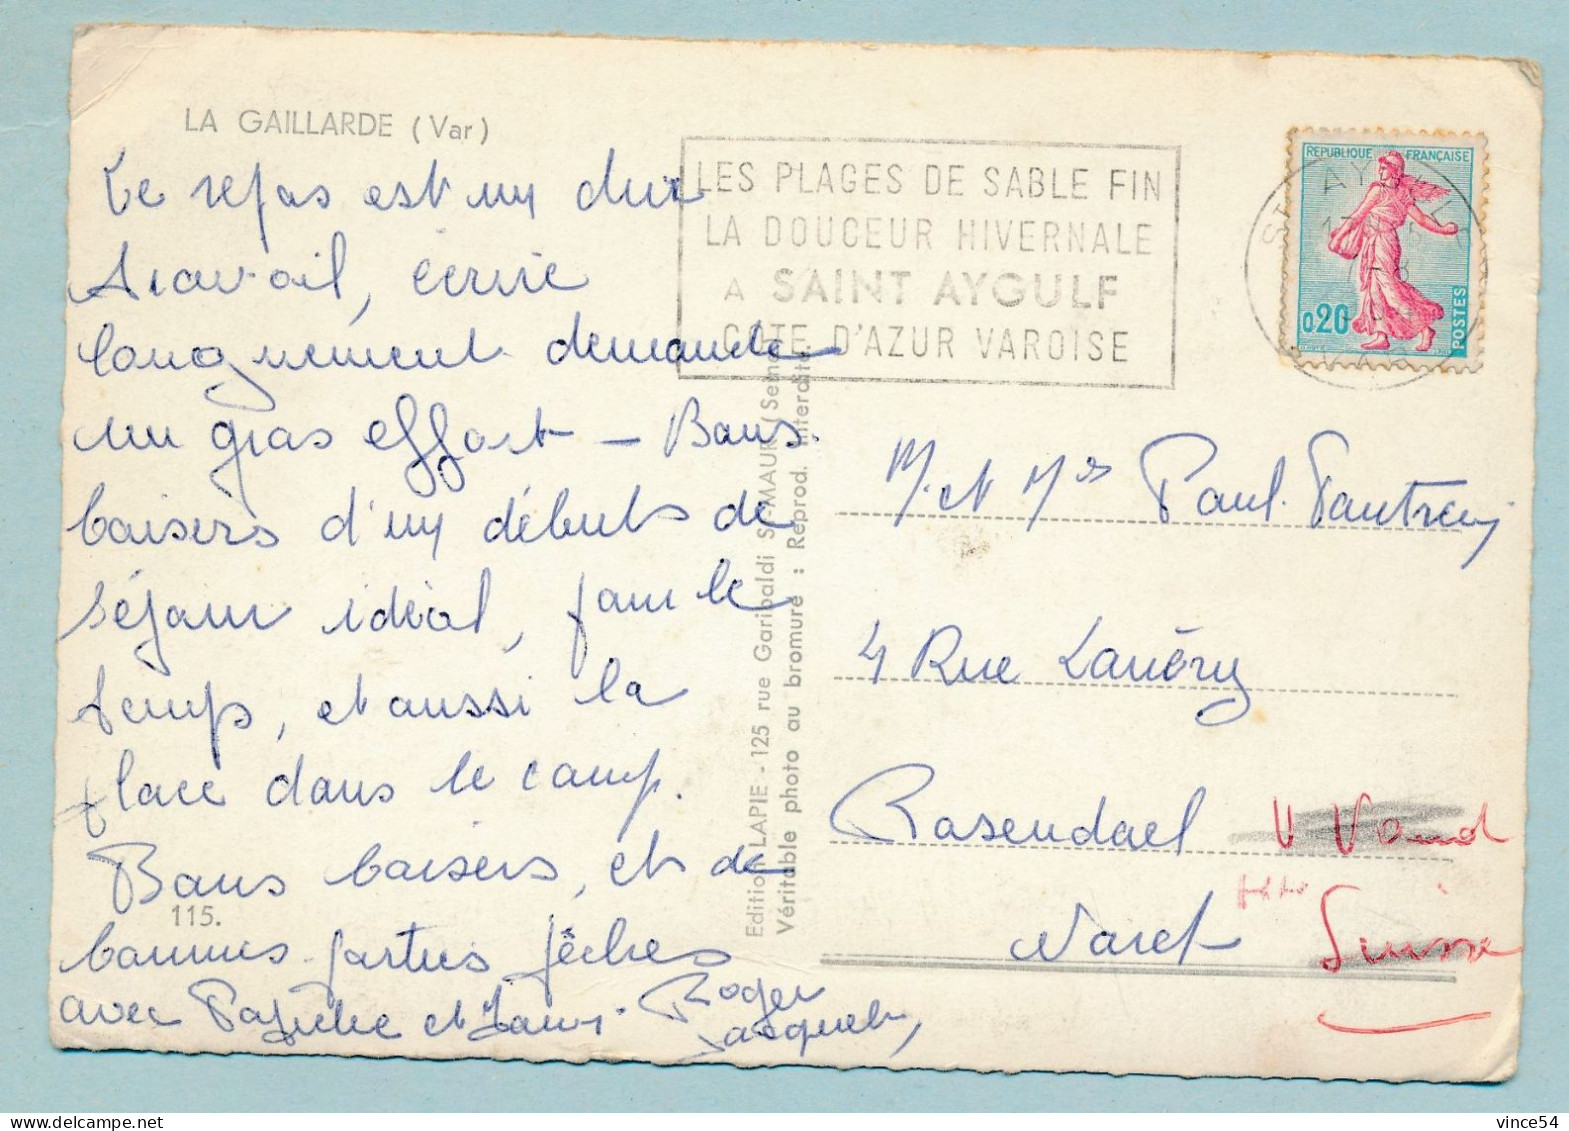 LA GAILLARDE (Var)
Le repas est un dur
travail, écrire
longuement demande
un gros effort - Bons
baisers d'un débuts de
séjour idéal, pour le
temps, et aussi la
place dans le camp.
Bons baisers, et de
bonnes parties pêches
avec et
Roger
Jacqueline
115.
Edition LAPIE - 125 rue Garibaldi St-MAUR (Seine)
Véritable photo au bromure : Reprod. interdite
LES PLAGES DE SABLE FIN
LA DOUCEUR HIVERNALE
A SAINT AYGULF
COTE D'AZUR VAROISE
REPUBLIQUE FRANÇAISE
0,20
POSTES
ST AYGULF
VAR
M. et Me Paul
4 Rue
Rosendael
Nord
Vaud
Suisse
vince54